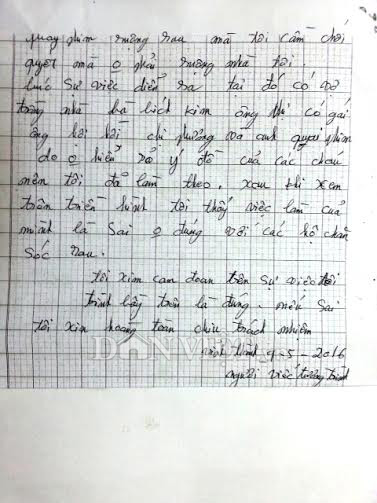 quay phim ruộng rau mà tôi cầm chổi
quyet mà o phải ruộng nhà tôi.
lúc sự việc diễn ra tại đó có vợ
trồng nhà bà lịch kim ông thi có gái
ông hội hới chi phường và anh quay phim
do o hiểu rỏ ý đồ của các cháu
nên tôi đã làm theo. xau khi xem
trên triền hình tôi thấy việc làm của
mình là sai o đúng với các hộ chăn
sóc rau.
tôi xin cam đoan trên sự việc tôi
trình bầy trên là đúng. nếu sai
tôi xin hoàng toàn chiu trách nhiệm
DÂN VIỆT
9-5-2016
người viết tường trình